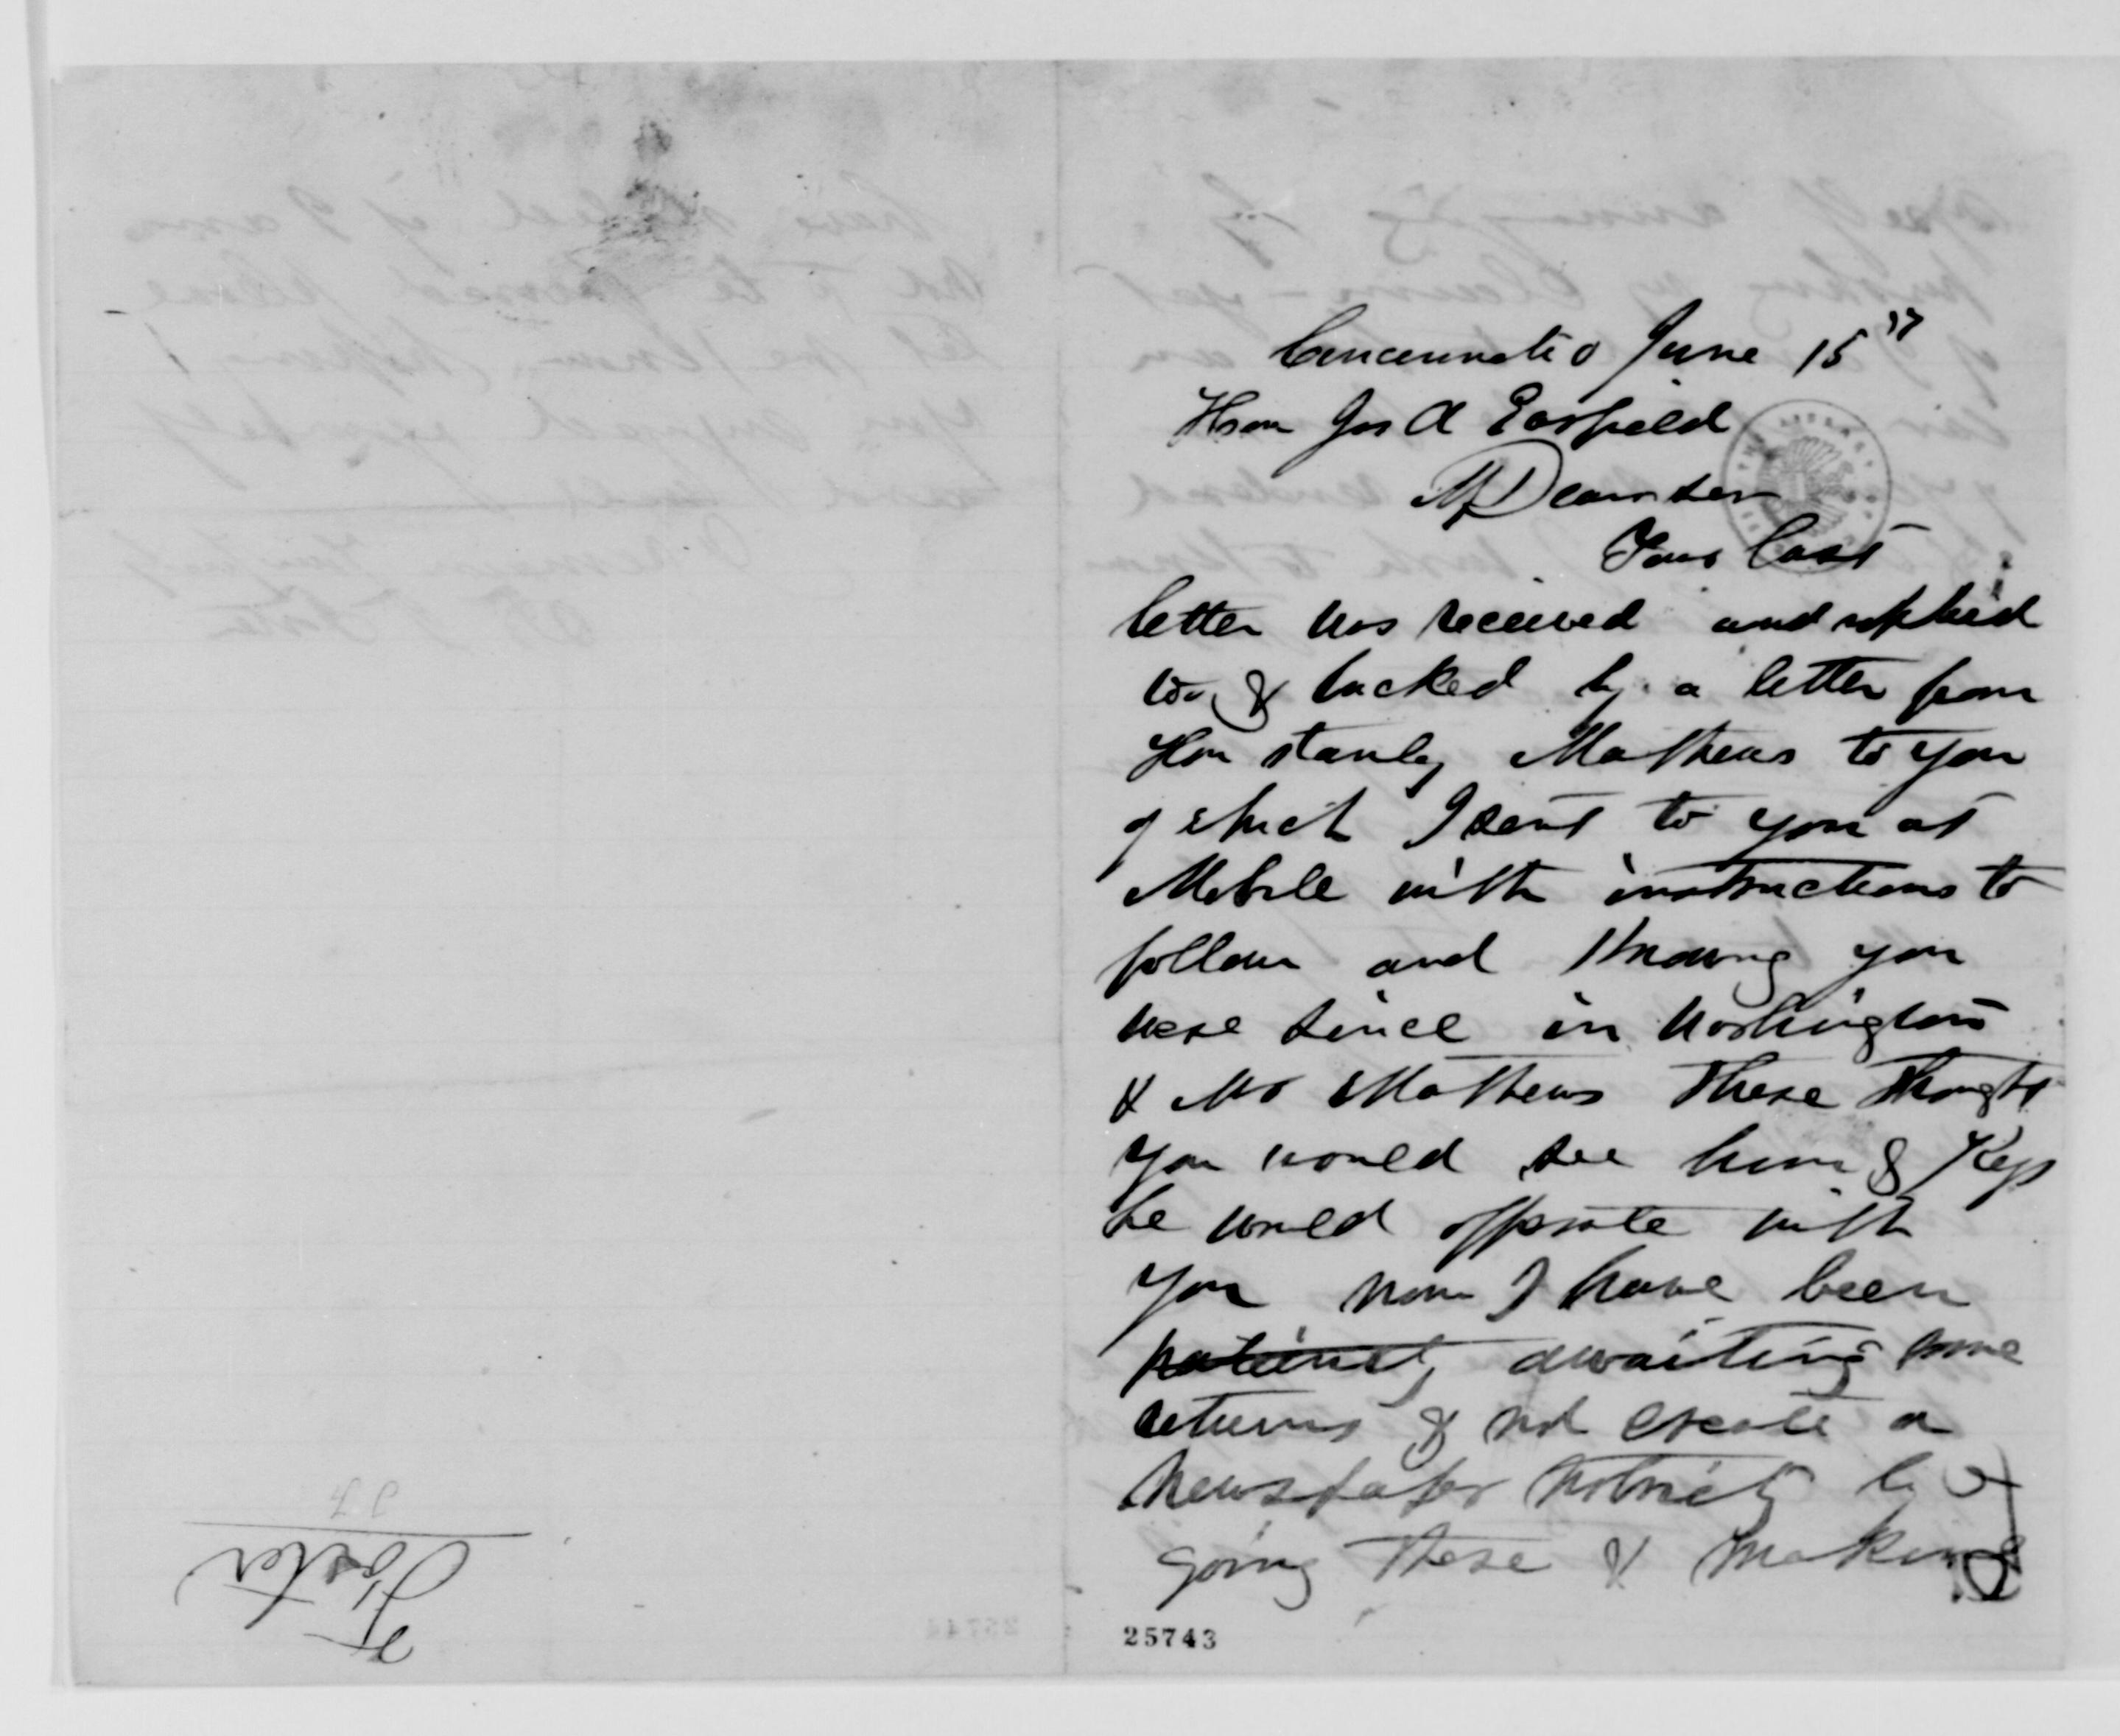 Cincinnati O June 15 77
Hon Jas A Garfield
My Dear Sir
Your last
letter was received and replied
too & backed by a letter from
Hon Stanley Mathews to you
of which I sent to you at
Mobile with instructions to
follow and knowing you
were since in Washington
& Mr Mathews there thought
you would see him & Key
he would opperate with
you now I have been
patiently awaiting some
returns & not create a
Newspaper notriety by
going there & making
25743
Foster
F